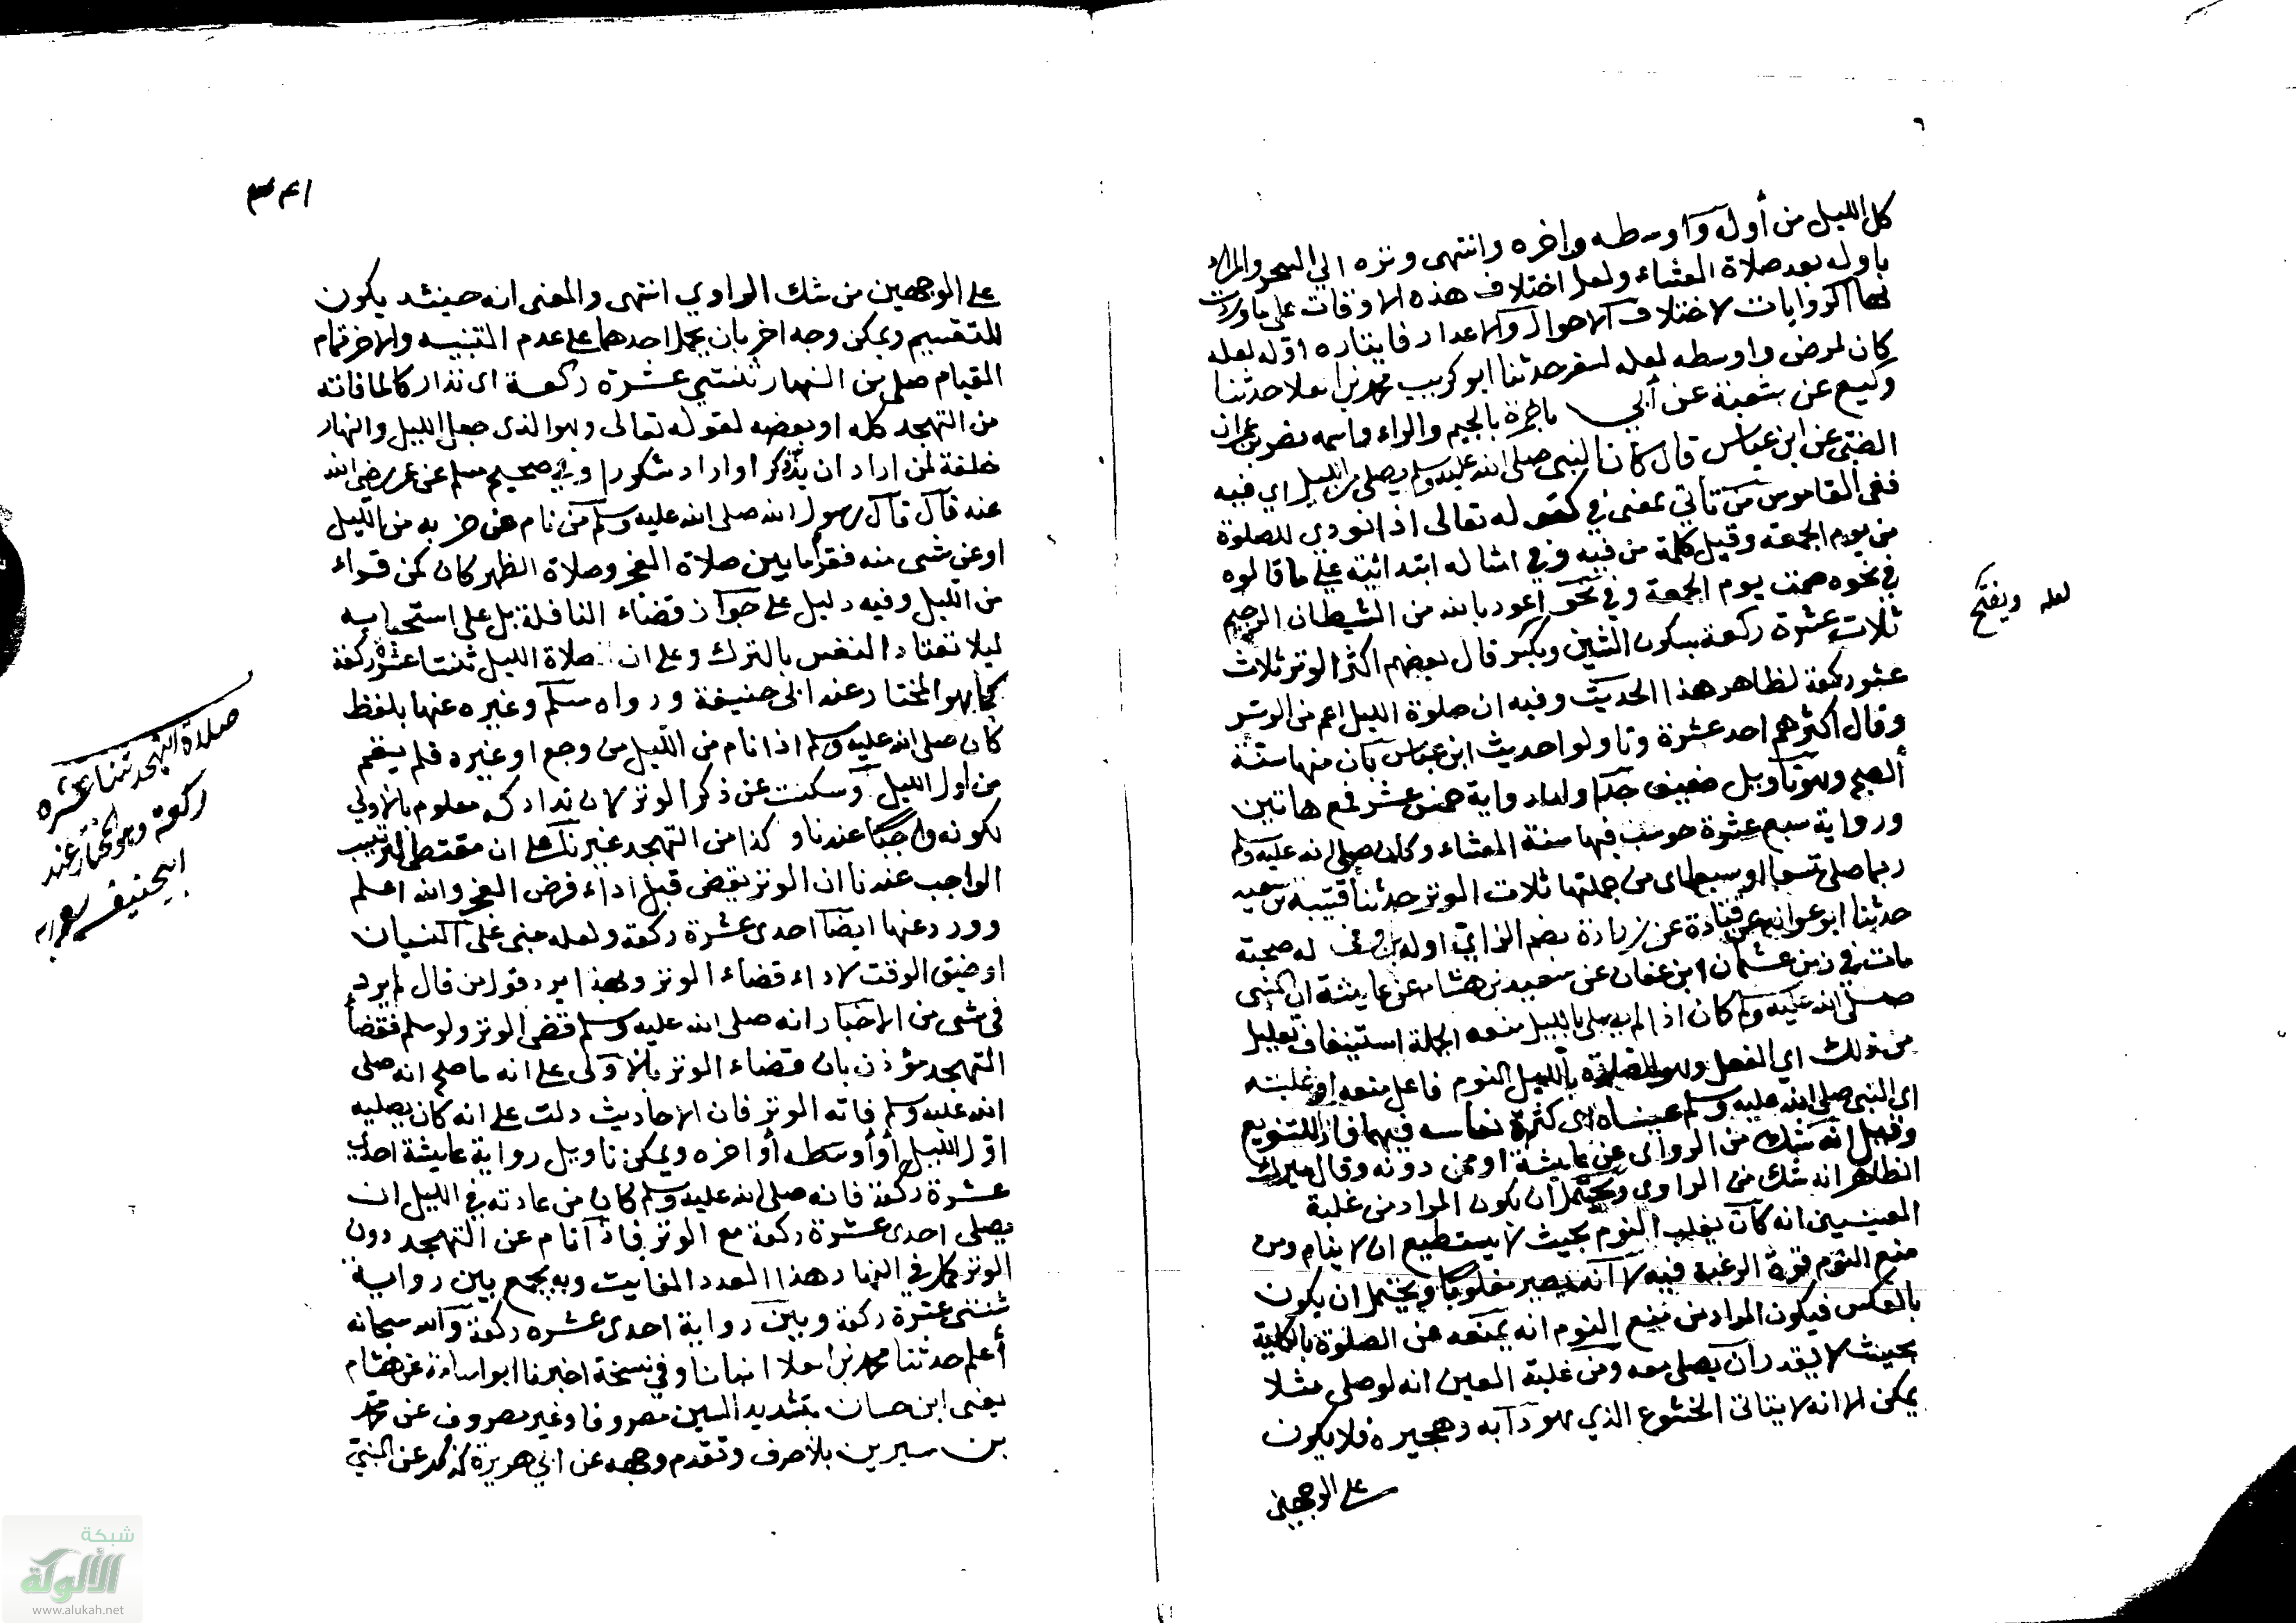 كل الليل من أوله وأوسطه واخره وانتهى وتره الي السحر والمراد
باوله بعد صلاة العشاء ولعل اختلاف هذه الاوقات على ما وردت
بها الروايات لاختلاف الاحوال والاعذار فايتاره اوله لعله
كان لمرض واوسطه لعله لسفر حدثنا ابو كريب محمد بن العلا حدثنا
وكيع عن شعبة عن أبي جمرة بالجيم والراء واسمه نصر بن عمران
الضبي عن ابن عباس قال كان النبي صلى الله عليه وسلم يصلي من الليل اي فيه
ففي القاموس من تأتي بمعنى في كقوله تعالى اذا نودي للصلوة
من يوم الجمعة وقيل كلمة من فيه وفي امثاله ابتدائية على ما قالوه
في نحوه صمت يوم الجمعة وفي نحو اعوذ بالله من الشيطان الرجيم
ثلاث عشرة ركعة بسكون الشين ويكسر قال بعضهم اكثر الوتر ثلاث
لعله ويفتح
عشر ركعة لظاهر هذا الحديث وفيه ان صلوة الليل اعم من الوتر
وقال اكثرهم احد عشرة وتاولوا حديث ابن عباس بان منها سنة
الصبح وهو تاويل ضعيف جدا واما رواية خمس عشر فمع هاتين
ورواية سبع عشرة حوسب فيها سنة العشاء وكان صلى الله عليه وسلم
ربما صلى تسعا او سبعا اي من جملتها ثلاث الوتر حدثنا قتيبة بن سعيد
حدثنا ابو عوانه عن قتادة عن زرارة بضم الزاي اوله بن اوفى له صحبة
مات في زمن عثمان ابن عفان عن سعيد بن هشام عن عايشة ان النبي
صلى الله عليه وسلم كان اذا لم يصل بالليل منعه الجملة استيناف تعليل
من ذلك اي الفعل وهو الصلوة بالليل النوم فاعل منعه او غلبته
اي النبي صلى الله عليه وسلم عيناه اي كثرة نعاسه فيهما فاو للتنويع
وقيل انه شك من الراوي عن عايشة او ممن دونه وقال ميرك
الظاهر انه شك من الراوي ويحتمل ان يكون المراد من غلبة
العينين انه كان يغلب النوم بحيث لا يستطيع ان لا ينام ومن
منع النوم قوة الرغبة فيه لا انه يصير مغلوبا ويحتمل ان يكون
بالعكس فيكون المراد من منع النوم انه يمنعه عن الصلوة بالكلية
بحيث لا يقدر ان يصلي معه ومن غلبة العين انه لو صلى مثلا
يمكن الا انه لا يتاتى الخشوع الذي هو دابه وهجيره فلا يكون
على الوجهين
٣٤١
على الوجهين من شك الراوي انتهى والمعنى انه حينئذ يكون
للتقسيم ويمكن وجه اخر بان يحمل احدهما على عدم التنبيه والاخر تمام
القيام صلى من النهار ثنتي عشرة ركعة اى تداركا لما فاته
من التهجد كله او بعضه لقوله تعالى وهو الذى جعل الليل والنهار
خلفة لمن اراد ان يذكر او اراد شكورا وفي صحيح مسلم عن عمر رضي الله
عنه قال قال رسول الله صلى الله عليه وسلم من نام عن حزبه من الليل
او عن شى منه فقرأ ما بين صلاة الفجر وصلاة الظهر كان كمن قراء
من الليل وفيه دليل على جواز قضاء النافلة بل على استحبابه
ليلا تعتاد النفس بالترك وعلى ان صلاة الليل ثنتا عشرة ركعة
كما هو المختار عند ابى حنيفة ورواه مسلم وغيره عنها بلفظ
كان صلى الله عليه وسلم اذا نام من الليل من وجع او غيره فلم يقم
من اول الليل وسكنت عن ذكر الوتر لان تداركه معلوم بالاولى
لكونه واجبا عندنا وكذا من التهجد غير تلك على ان مقتضى الترتيب
الواجب عندنا ان الوتر يقضى قبل اداء فرض الفجر والله اعلم
وورد عنها ايضا احدى عشرة ركعة ولعله مبنى على النسيان
او ضيق الوقت لاداء قضاء الوتر وبهذا يرد قول من قال لم يرد
فى شى من الاخبار انه صلى الله عليه وسلم قضى الوتر ولو سلم فقضاء
التهجد مؤذن بان قضاء الوتر بالاولى على انه ما صح انه صلى
الله عليه وسلم فاته الوتر فان الاحاديث دلت على انه كان يصليه
اول الليل أو أوسطه أو اخره ويمكن تاويل رواية عايشة احدى
عشرة ركعة فانه صلى الله عليه وسلم كان من عادته في الليل ان
يصلى احدى عشرة ركعة مع الوتر فاذا نام عن التهجد دون
الوتر كمل في النهار هذا العدد الفايت وبه يجمع بين رواية
ثنتى عشرة ركعة وبين رواية احدى عشره ركعة والله سبحانه
أعلم حدثنا محمد بن العلا انبانا وفي نسخة اخبرنا ابو اسامة عن هشام
يعنى ابن حسان بتشديد السين مصروفا وغير مصروف عن محمد
بن سيرين بلا صرف وتقدم وجهه عن ابي هريرة عن النبي
صلاة التهجد ثنتا عشره
ركعة وهو المختار عند
ابيحنيفه
شبكة
الألوكة
www.alukah.net